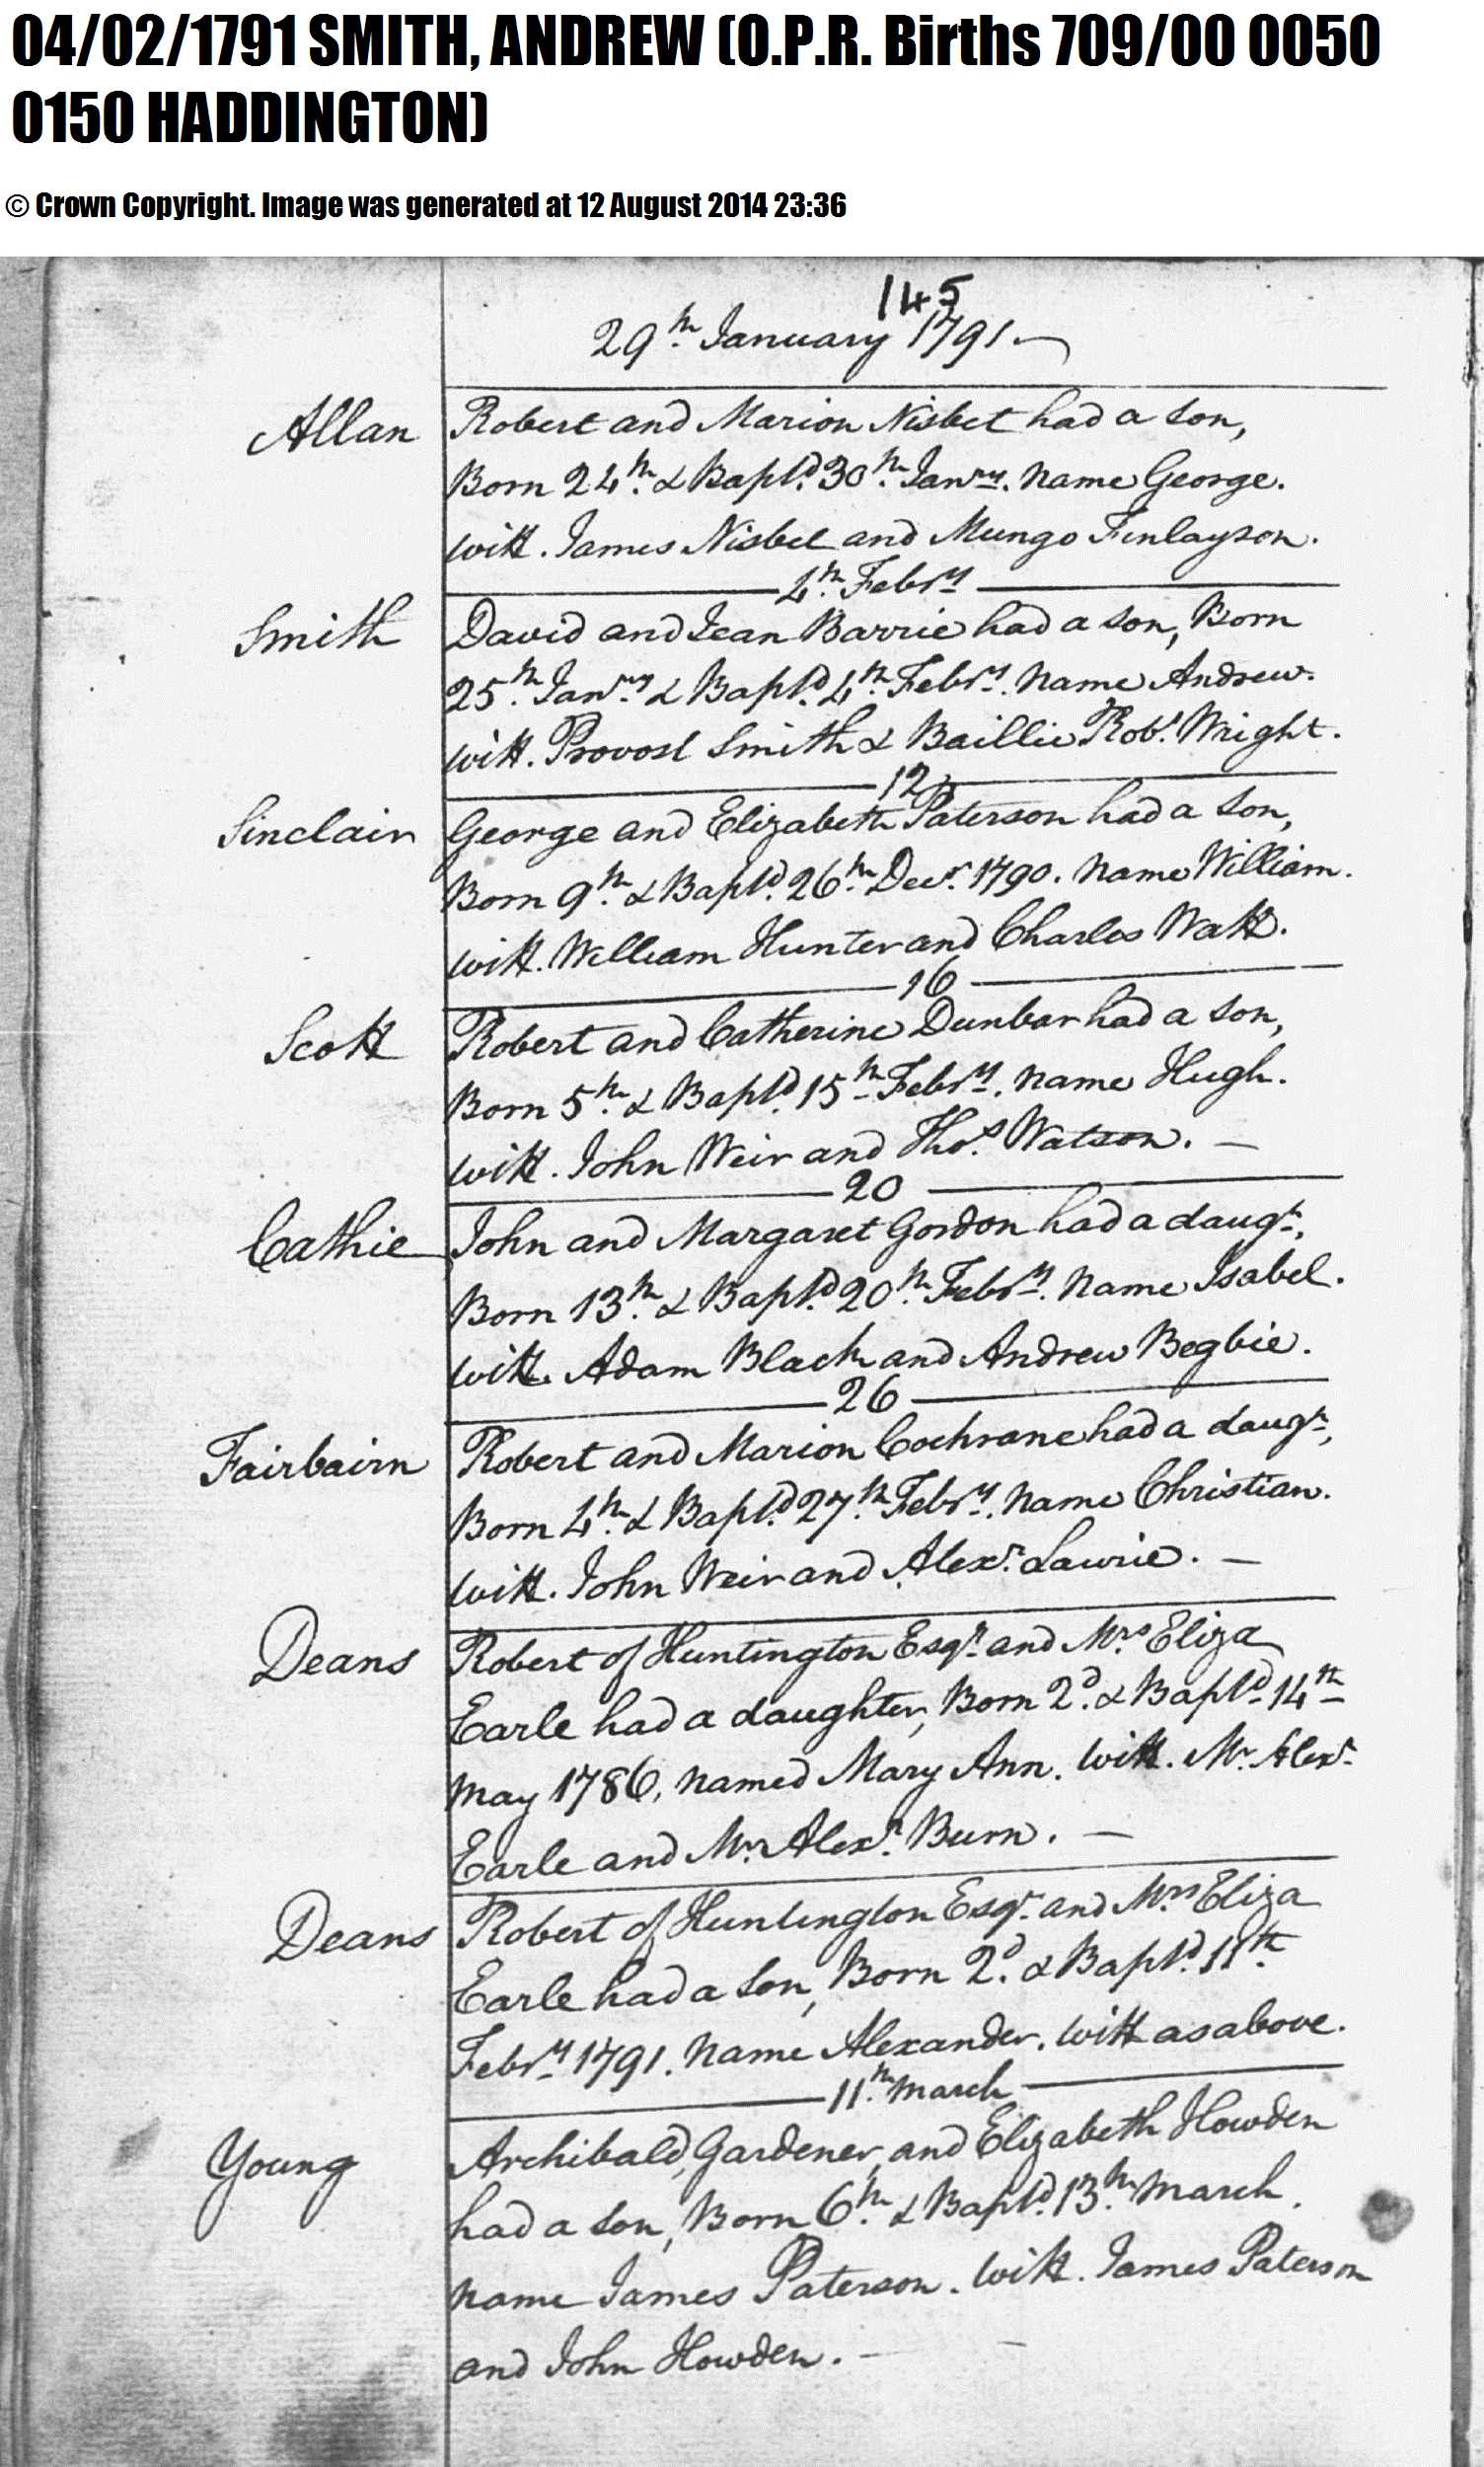 04/02/1791 SMITH, ANDREW (O.P.R. Births 709/00 0050
0150 HADDINGTON)
© Crown Copyright. Image was generated at 12 August 2014 23:36
145
29th January 1791
Allan Robert and Marion Nisbet had a son,
Born 24th & Baptd 30th Janry. name George.
witt. James Nisbet and Mungo Finlayson.
4th Febry
Smith David and Jean Barrie had a son, Born
25th Janry & Baptd 4th Febry. name Andrew.
witt. Provost Smith & Baillie Robt. Wright.
12
Sinclair George and Elizabeth Paterson had a son,
Born 9th & Baptd 26th Decr. 1790. name William.
witt. William Hunter and Charles Watt.
16
Scott Robert and Catherine Dunbar had a son,
Born 5th & Baptd 15th Febry. name Hugh.
witt. John Weir and Thos. Watson. —
20
Cathie John and Margaret Gordon had a daugr,
Born 13th & Baptd 20th Febry. name Isabel.
witt. Adam Black and Andrew Begbie.
26
Fairbairn Robert and Marion Cochrane had a daugr,
Born 4th & Baptd 27th Febry. name Christian.
witt. John Weir and Alexr. Lawrie. —
Deans Robert of Huntington Esqr. and Mrs Eliza
Earle had a daughter, Born 2d. & Baptd 14th
may 1786, named Mary Ann. witt. Mr. Alexr.
Earle and Mr. Alexr. Burn. —
Deans Robert of Huntington Esqr. and Mrs Eliza
Earle had a son, Born 2d. & Baptd 11th
Febry 1791. name Alexander. witt as above.
11th march
Young Archibald, Gardener, and Elizabeth Howden
had a son, Born 6th & Baptd 13th march.
name James Paterson. witt. James Paterson
and John Howden. —